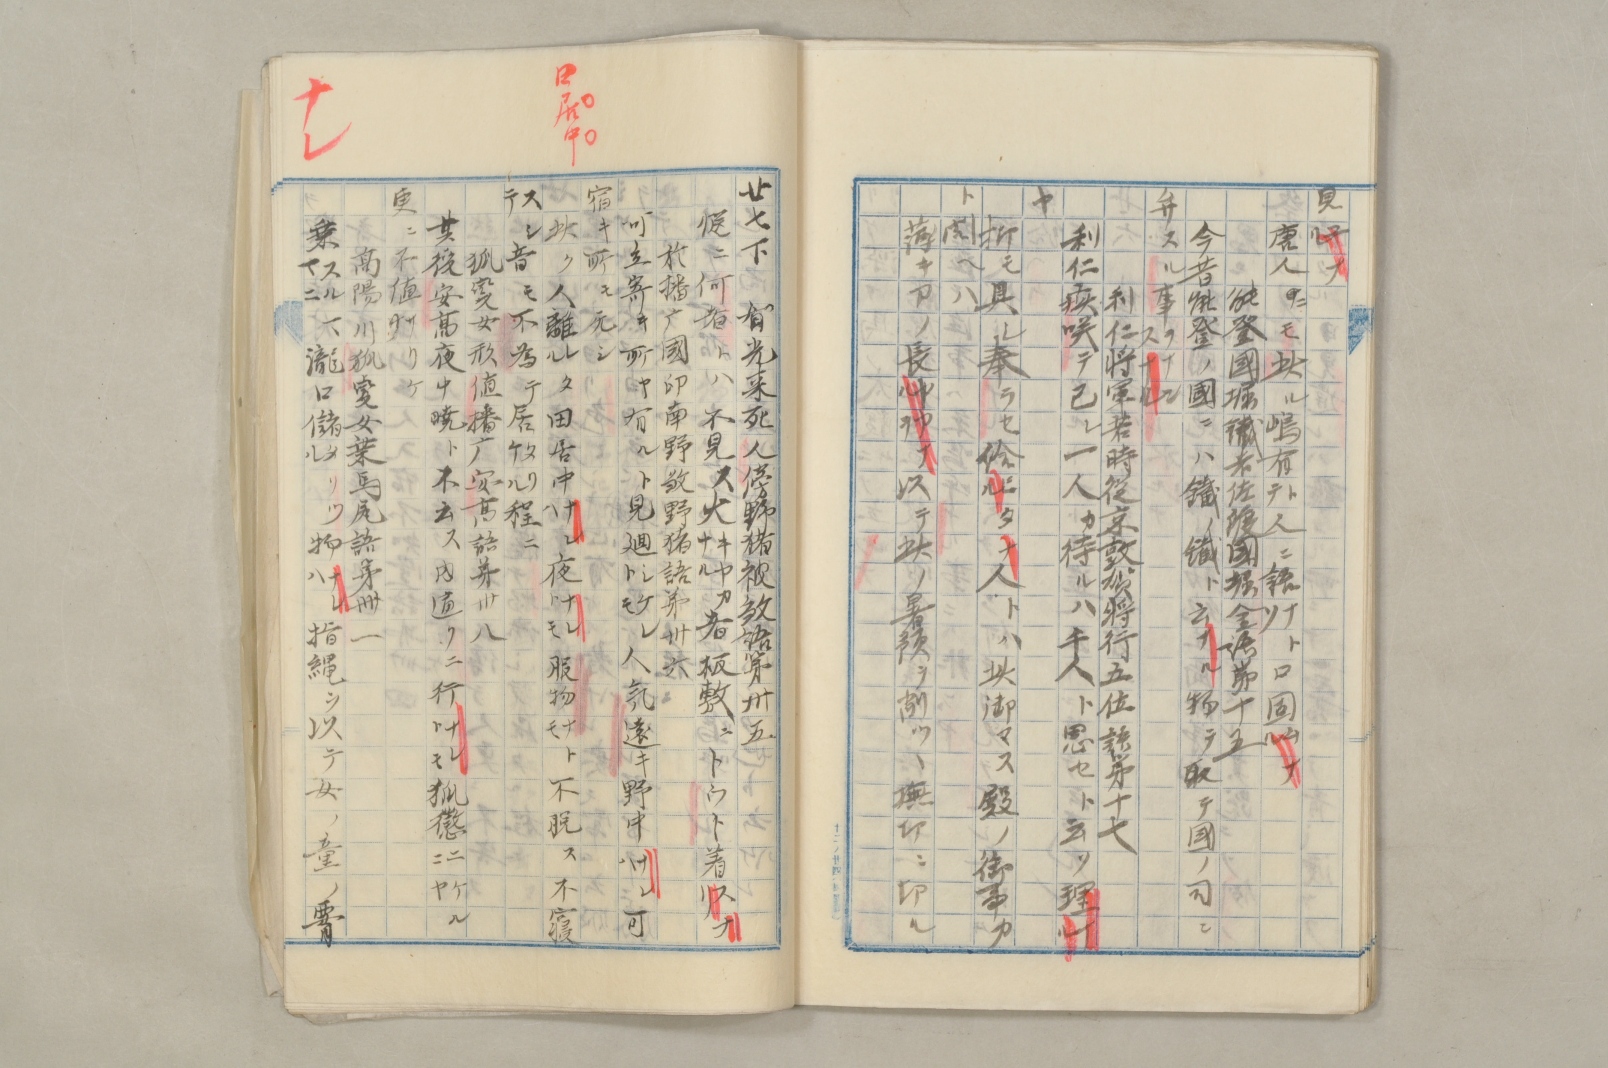 見
鹿人ナニモ此ル嗚有テト人ニ語ナト口固ムナ
能登國堀鐵者佐渡國堀金語第十五
今昔能登ノ國ニハ鐵ノ鐵ト云ナル物ヲ取テ國ノ司ニ
弁スル事ヲナン
スナル
利仁將軍若時従京敦賀將行五位語第十七
利仁疾咲テ己レ一人カ待ルハ千人ト思セト云ソ理
ヤ
折モ具シ奉ラセ給ニタナ人トハ此御マス殿ノ御事カ
ト闘ヘハ
薄キ刀ノ長
以テ此ノ暑預ヲ削ツヽ撫切ニ切ル
ナレ
口居中
廿七下 頼光来死人傍野猪被殺語第卅五
俄ニ何者トハ不見ス大キヤカナル者板敷ニトウト着
於播广國印南野殺野猪語第卅六
何立寄キ所ヤ有ルト見廻シケレトモ人気遠キ野中ナレハ可
宿キ所モ无シ
此ク人離レタ田居中ナレハ夜ナレトモ服物ナトモ不脱ス不寝
スシテ音モ不為テ居タリケル程ニ
狐変女形値播广安高語第卅八
其後安高夜中暁ト不云ス内通リニ行ナレトモ狐懲ニケルニヤ
更ニ不値サリケ
高陽川狐変女乗馬尻語第卌一
乗スルマヽニ瀧口儲タリツル物ナレハ指縄ヲ以テ女ノ童ノ